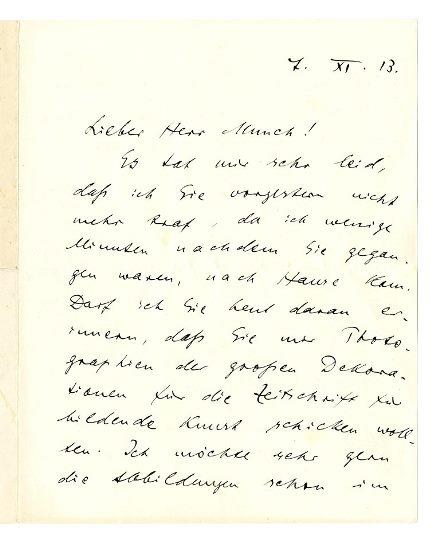 7. XI. 13.
Lieber Herr Munch!
Es tat mir sehr leid,
daß ich Sie vorgestern nicht
mehr traf, da ich wenige
Minuten nachdem Sie gegan-
gen waren, nach Hause kam.
Darf ich Sie heut daran er-
innern, daß Sie mir Photo-
graphien der großen Dekora-
tionen für die Zeitschrift für
bildende Kunst schicken woll-
ten. Ich möchte sehr gern
die Abbildungen schon im